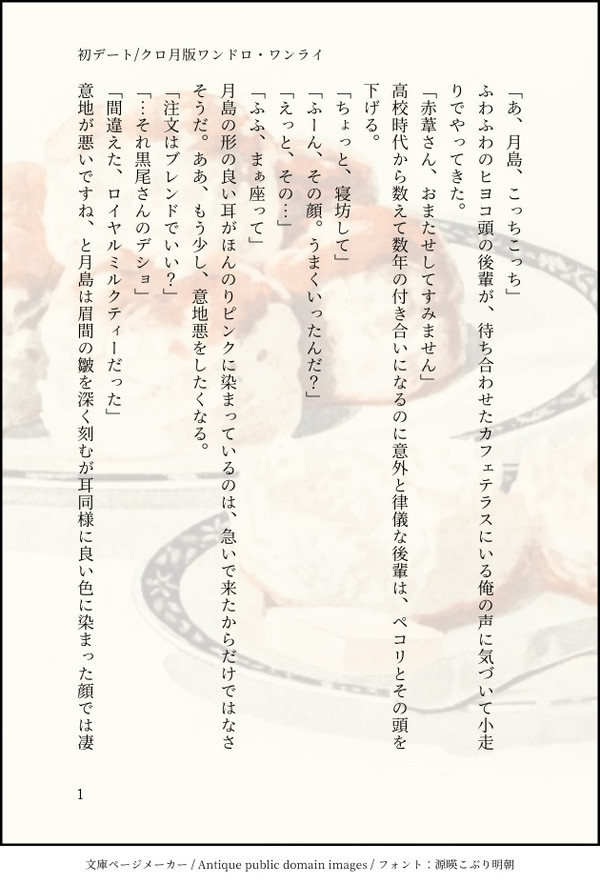 初デート/クロ月版ワンドロ・ワンライ
「あ、月島、こっちこっち」
ふわふわのヒヨコ頭の後輩が、待ち合わせたカフェテラスにいる俺の声に気づいて小走
りでやってきた。
「赤葦さん、おまたせしてすみません」
高校時代から数えて数年の付き合いになるのに意外と律儀な後輩は、ペコリとその頭を
下げる。
「ちょっと、寝坊して」
「ふーん、その顔。うまくいったんだ？」
「えっと、その…」
「ふふ、まぁ座って」
月島の形の良い耳がほんのりピンクに染まっているのは、急いで来たからだけではなさ
そうだ。ああ、もう少し、意地悪をしたくなる。
「注文はブレンドでいい？」
「…それ黒尾さんのデショ」
「間違えた、ロイヤルミルクティーだった」
意地が悪いですね、と月島は眉間の皺を深く刻むが耳同様に良い色に染まった顔では凄
1
文庫ページメーカー / Antique public domain images / フォント：源暎こぶり明朝